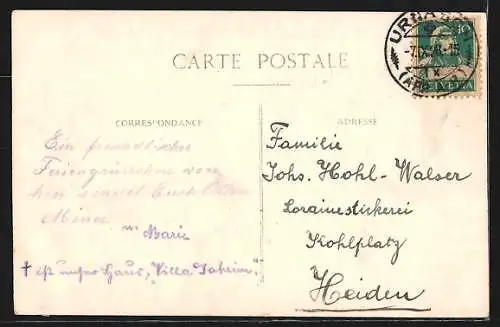 URNÄSCH
10
-7.IX.
(APPENZELL)
HELVETIA
CARTE POSTALE
CORRESPONDANCE
ADRESSE
Ein freundliches
Feriengrüsschen von
hier sendet Euch
Mina
u. Marie
† ist unser Haus, "Villa Daheim"
Familie
Johs. Hohl-Walser
Lorainestickerei
Kohlplatz
Heiden